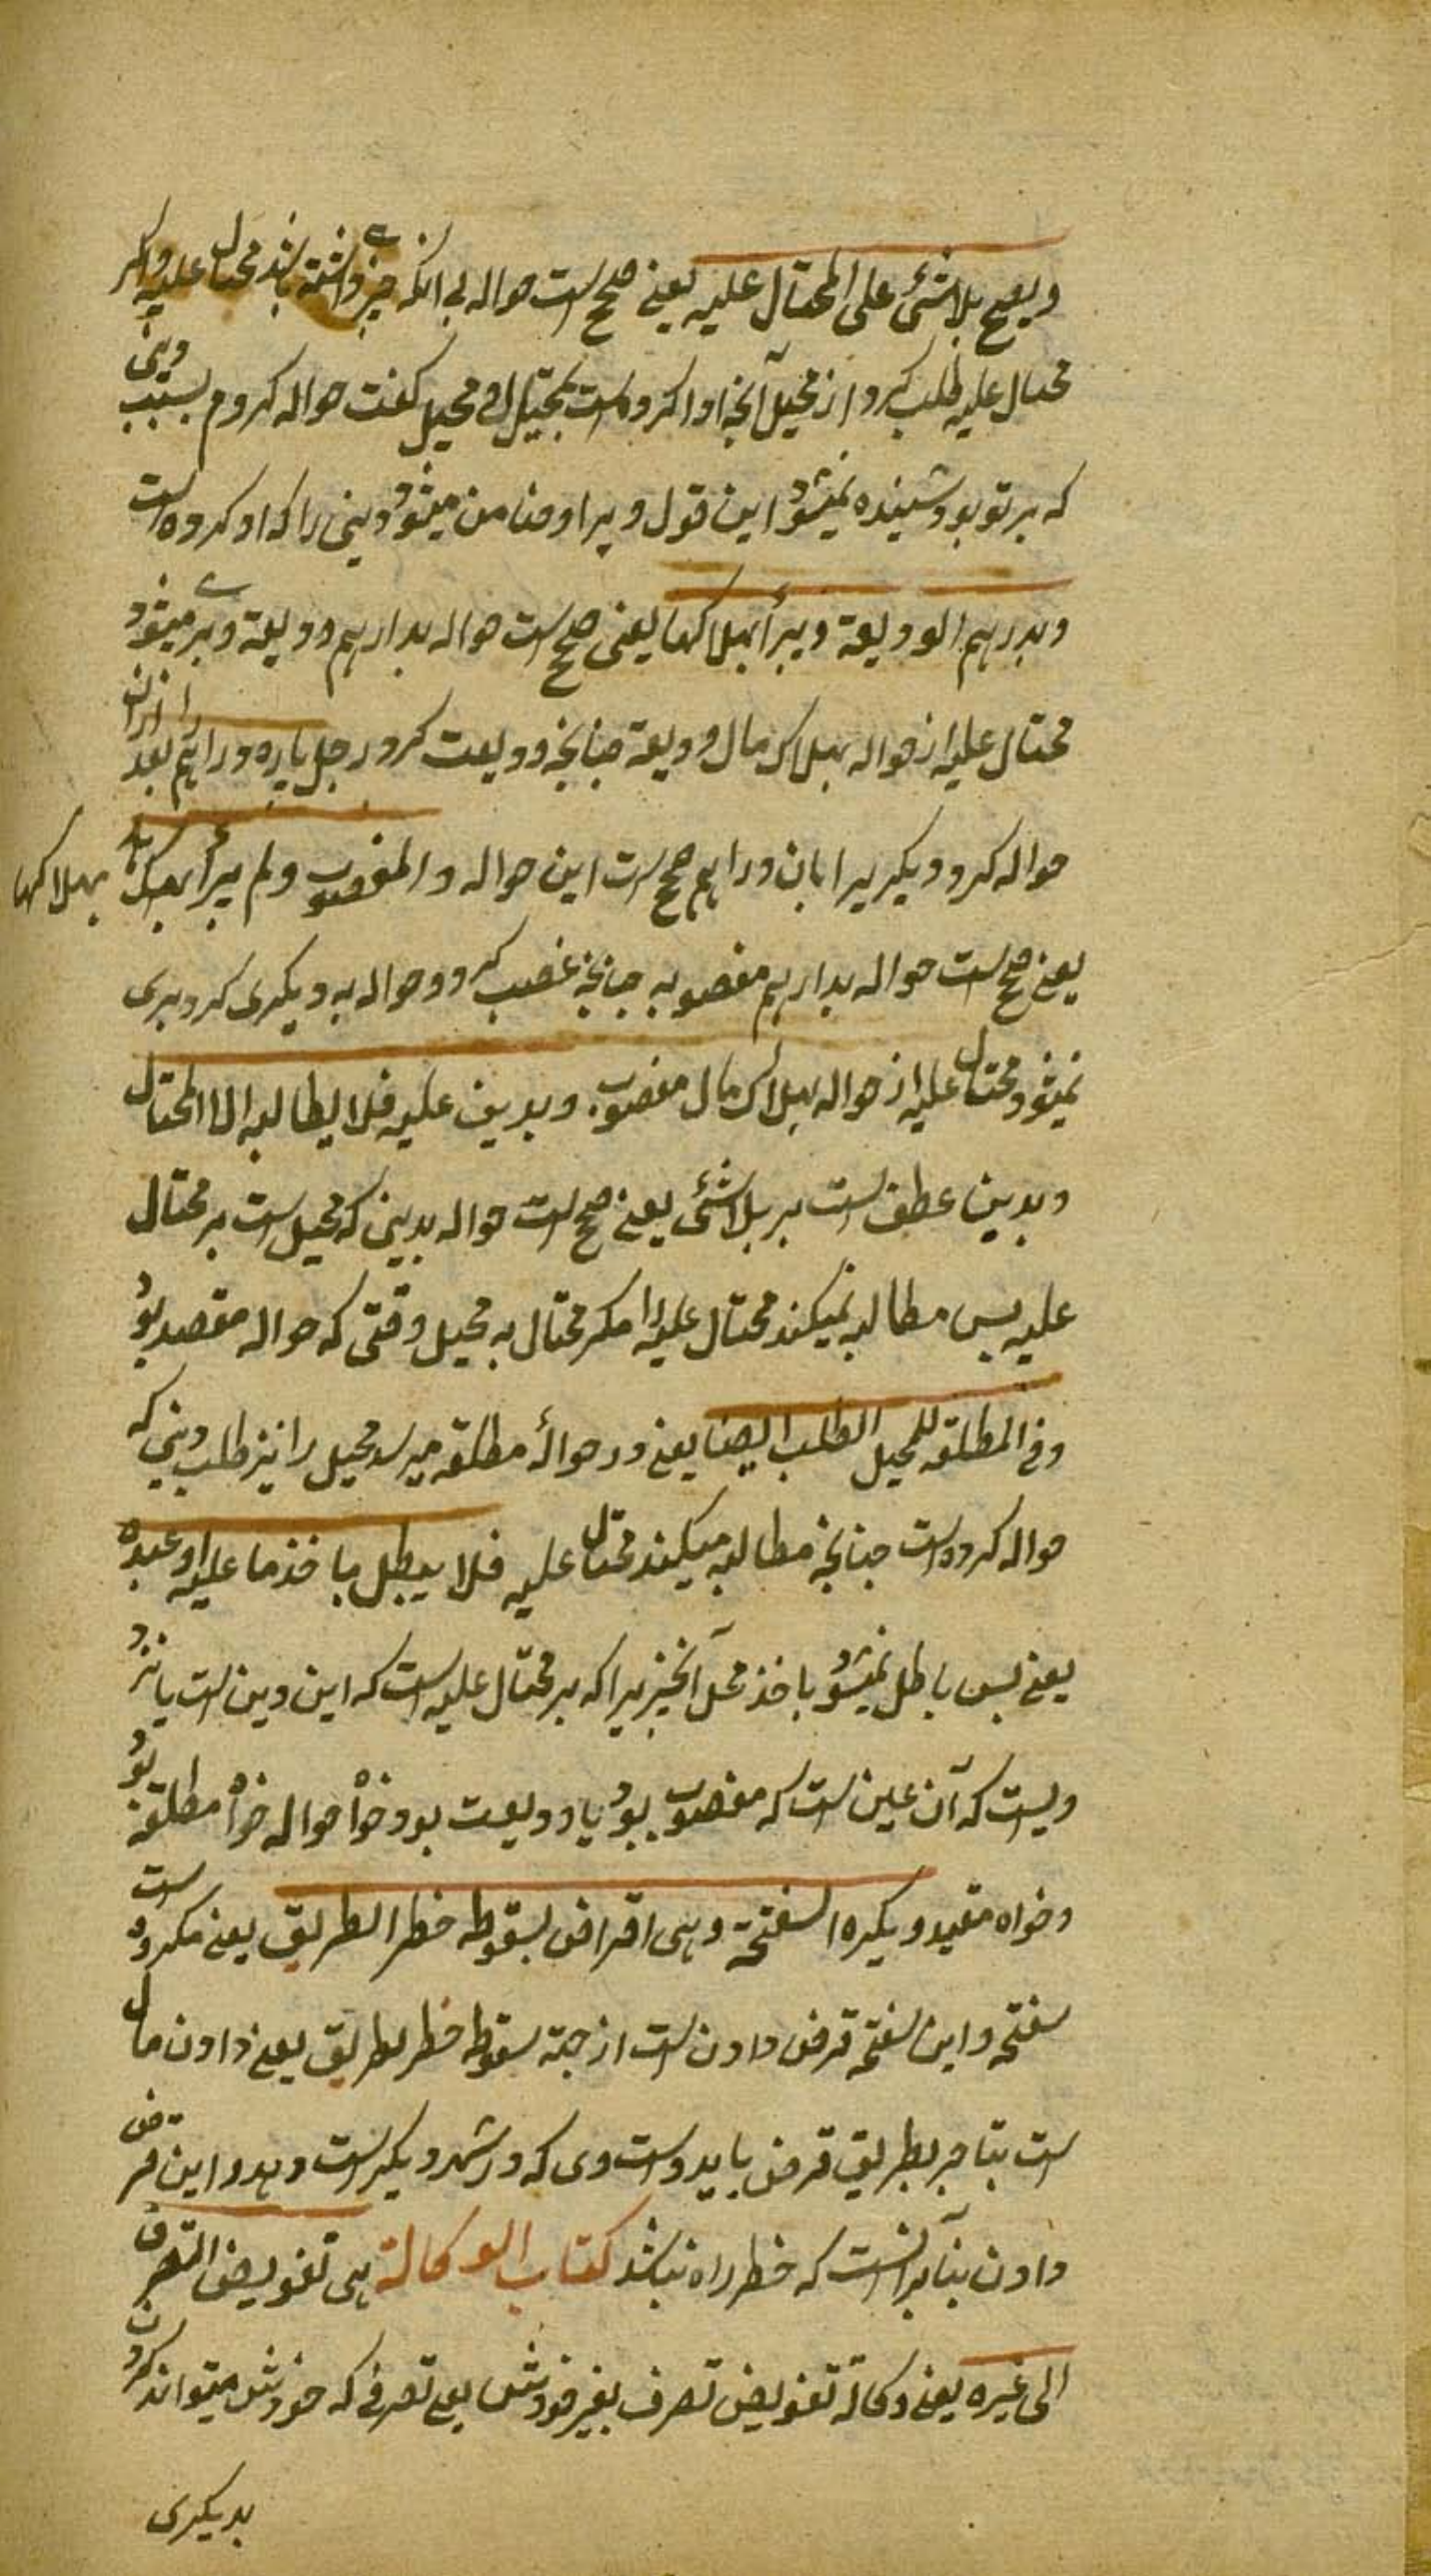 ویصح بلا شئ علی المحتال علیه یعنے صحیح است حواله بے انکه چیزے داشته باشد محتال علیه واکر
محتال علیه طلب کرد از محیل آنچه ادا کرده است بمحتال له و محیل کفت حواله کردم بسبب دینی
که بر تو بود شینده نمیشود این قول ویرا و ضامن میشود دینی را که او کرده است
وبدرهم الودیعة ویبرأ بهلاکها یعنی صحیح است حواله بدارهم ودیعة وبرے میشود
محتال علیه از حواله بهلاک مال ودیعة چنانچه ودیعت کرد رجل یاره دراهم را بعد ازان
حواله کرد دیکریرا بان دراهم صحیح است این حواله و المغصوبه ولم یبرأ بهلاکها
بهلاکها
یعنے صحیح است حواله بدارهم مغصوبه چنانچه غصب کرد وحواله به دیکری کرد بری
نمیشود محتال علیه از حواله بهلاک مال مغصوب. وبدین علیه فلا یطالبه الا المحتال
وبدین عطف است بر بلا شئ یعنے صحیح است حواله بدینی که محیل است بر محتال
علیه پس مطالبه نمیکند محتال علیه را مکر محتال به محیل وقتی که حواله مقصد بود
وفی المطلقه للمحیل الطلب ایضا یعنے در حوالهٔ مطلقه میرسد محیل را نیز طلب دینی که
حواله کرده است چنانچه مطالبه میکند محتال علیه فلا یبطل باخذ ما علیه او عنده
یعنے پس باطل نمیشود باخذ محل آنچیزیرا که بر محتال علیه است که این دین است یا نزد
ویست که آن عین است که مغصوب بود یا ودیعت بود خواه حواله خواه مطلقه بود
وخواه مقید ویکره السفتجة وهی اقراض لسقوط خطر الطریق یعنے مکروه است
سفتجه واین سفتجه قرض دادن است از جهة سقوط خطر طریق یعنے دادن مال
است بتاجر بطریق قرض باید دست وی که در شهر دیکر است وبدو این قرض
دادن بنآبر آنست که خطر راه نباشد کتاب الوکالة هی تفویض التصرف
الی غیره یعنے وکالة تفویض تصرف بغیر خودش یعنی تصرفے که خودش میتواند کردن
بدیکری